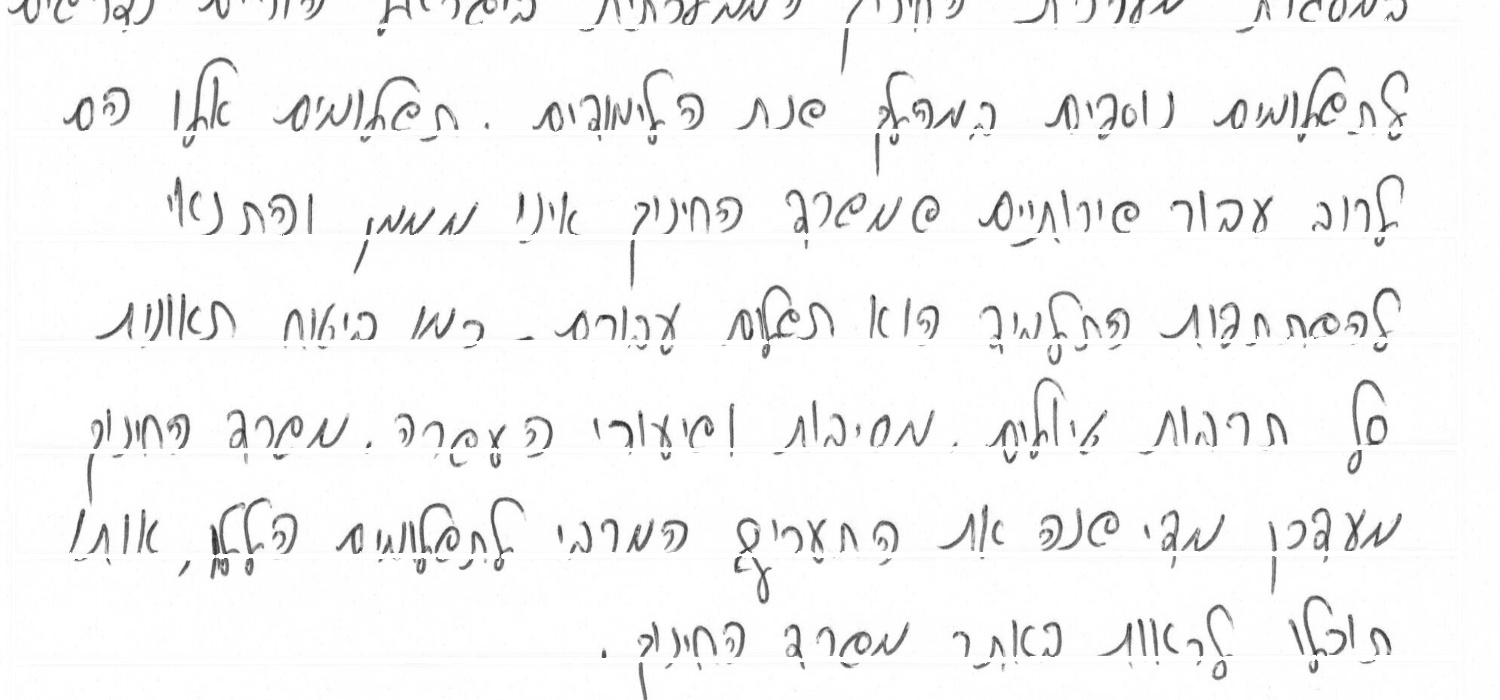 במסגרת מערכת החינוך הממלכתית בישראל הורים נדרשים
לתשלומים נוספים במהלך שנת הלימודים. תשלומים אלו הם
לרוב עבור שירותיים שמשרד החינוך אינו מממן והתנאי
להסתתפות התלמיד הוא תשלום עבורם - כמו ביטוח תאונות
סל תרבות טיולים. מסיבות ושיעורי העשרה. משרד החינוך
מעדכן מדי שנה את התעריף המרבי לתשלומים הללו, אותו
תוכלו לראות באתר משרד החינוך.